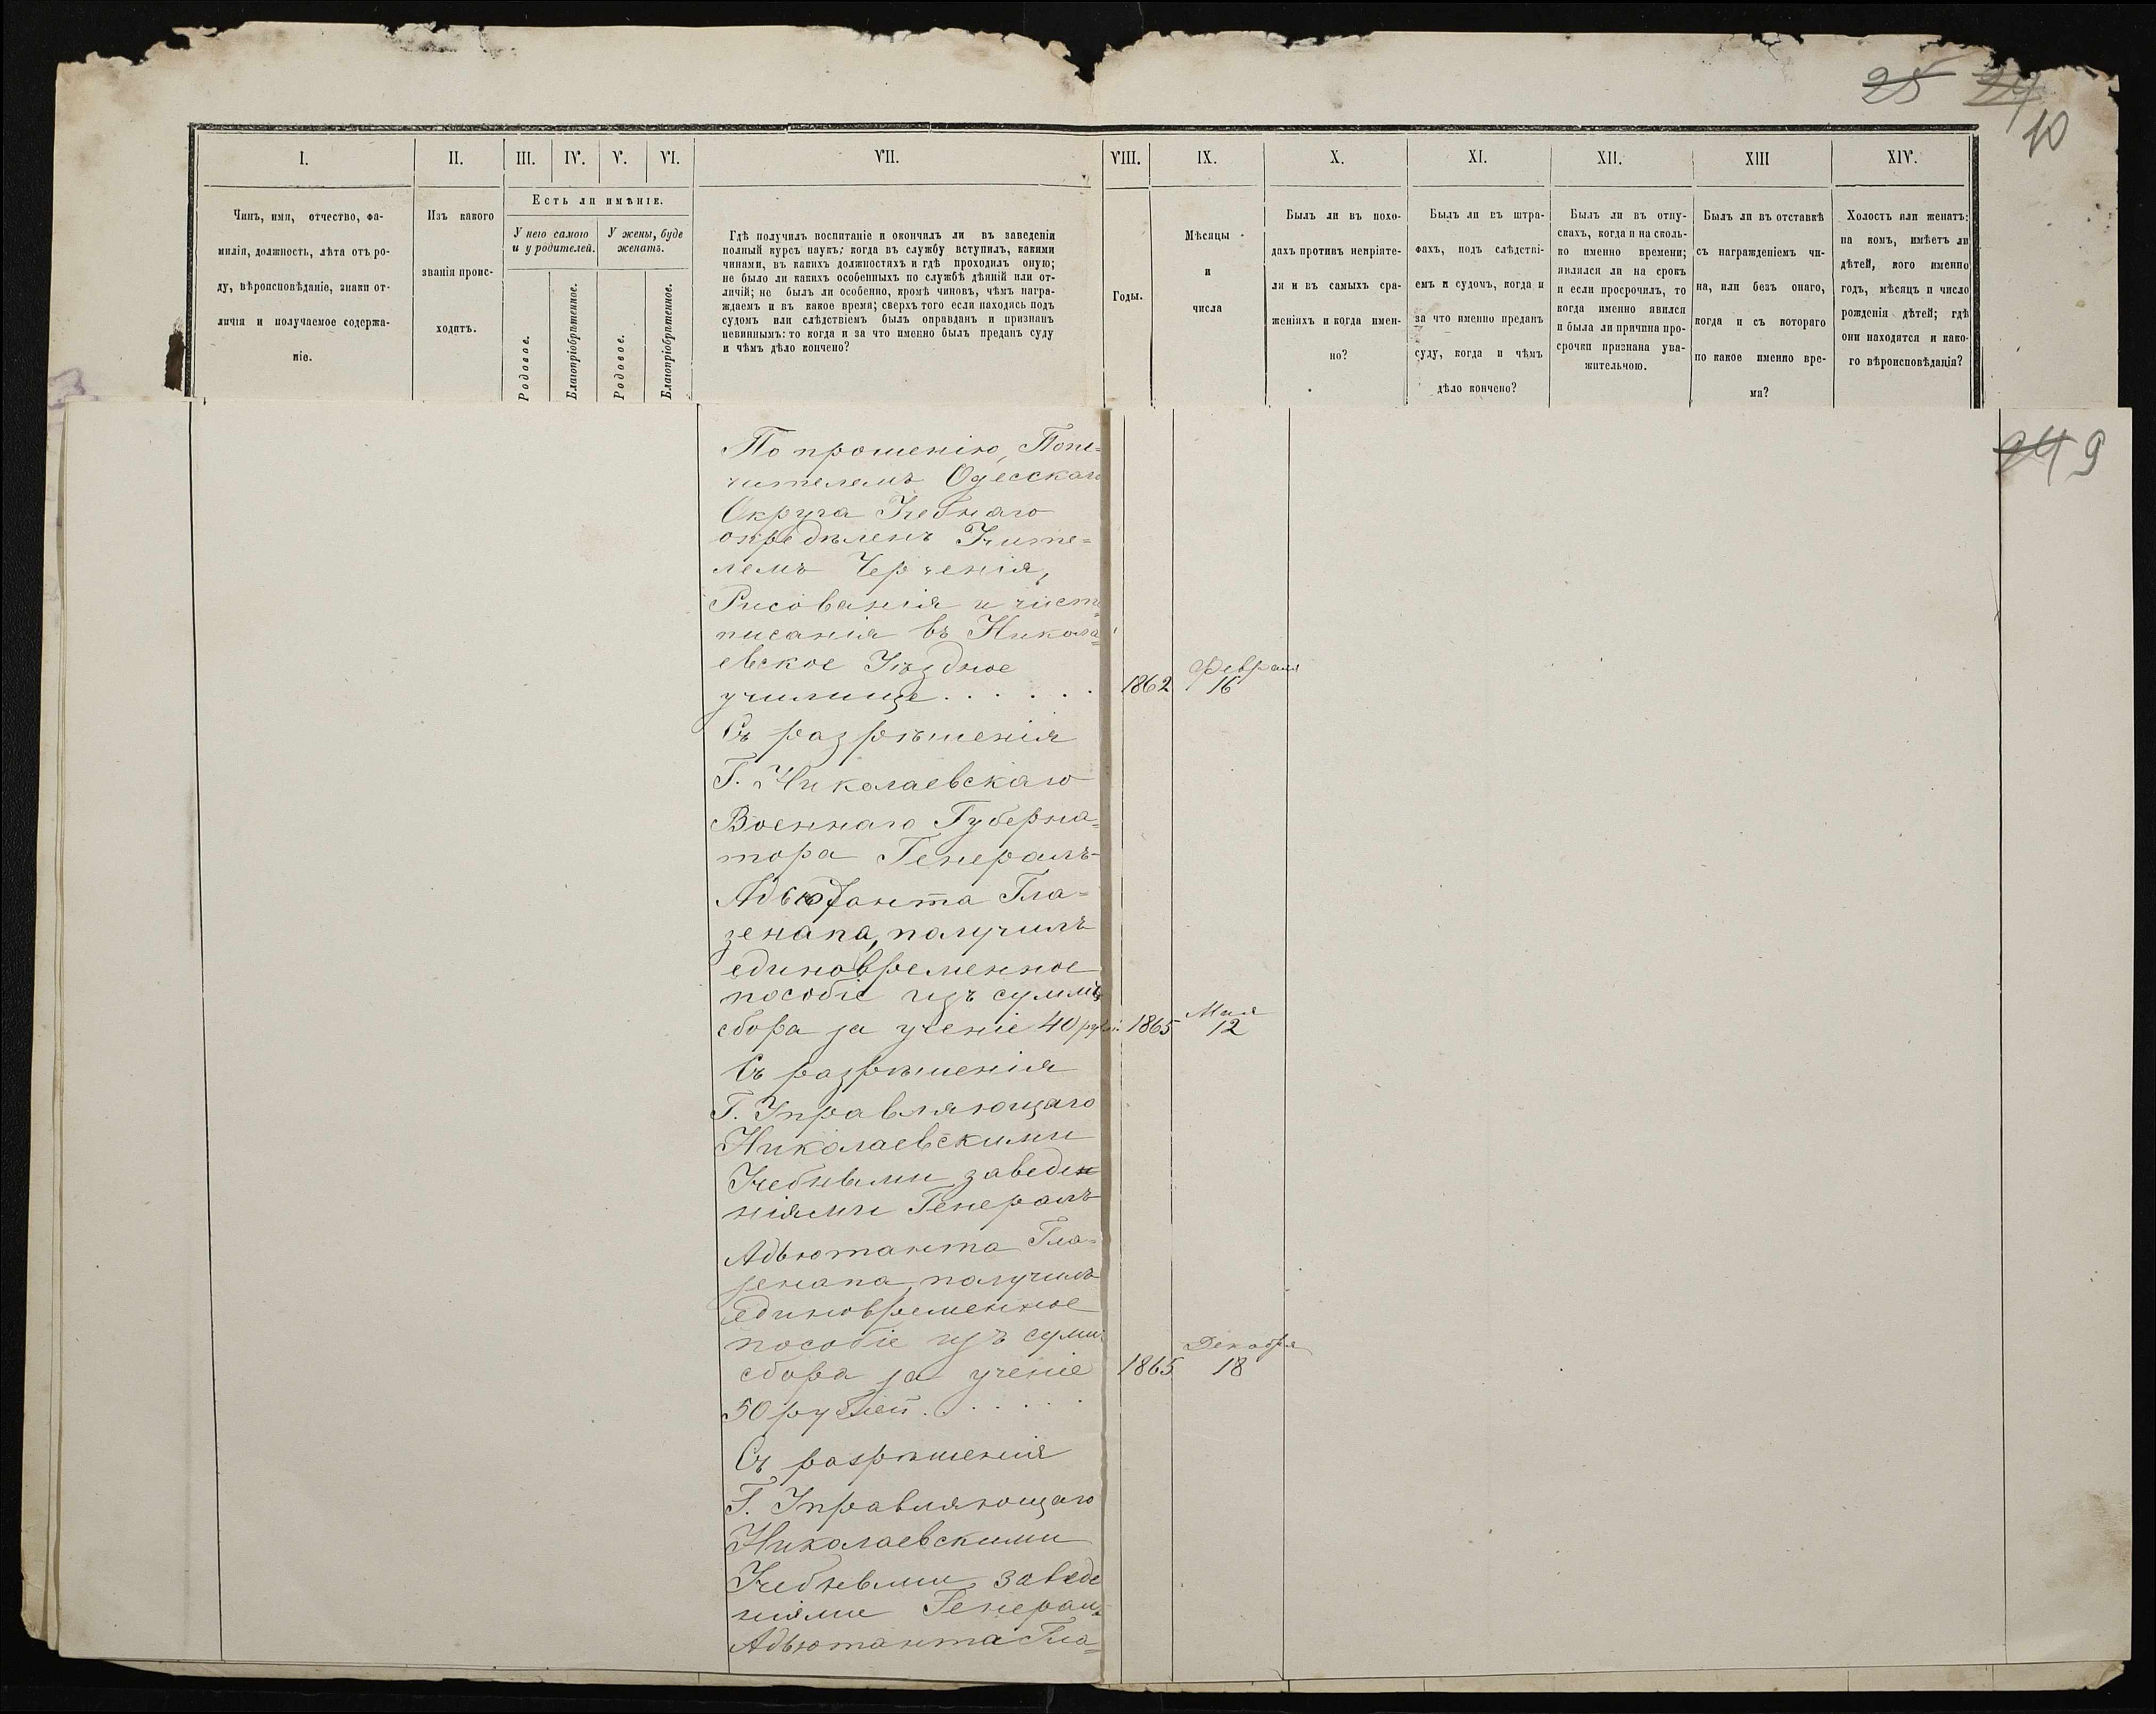 25 24
10
I.
II.
III.
IV.
V.
VI.
VII.
VIII.
IX.
X.
XI.
XII.
XIII
XIV.
Чинъ, имя, отчество, фа-
милія, должность, лѣта отъ ро-
ду, вѣроисповѣданіе, знаки от-
личія и получаемое содержа-
ніе.
Изъ какого
званія проис-
ходитъ.
Есть ли имѣніе.
У него самого
и у родителей.
У жены, буде
женатъ.
Родовое.
Благопріобрѣтенное.
Родовое.
Благопріобрѣтенное.
Гдѣ получилъ воспитаніе и окончилъ ли въ заведеніи
полный курсъ наукъ; когда въ службу вступилъ, какими
чинами, въ какихъ должностяхъ и гдѣ проходилъ оную;
не было ли какихъ особенныхъ по службѣ дѣяній или от-
личій; не былъ ли особенно, кромѣ чиновъ, чѣмъ награ-
ждаемъ и въ какое время; сверхъ того если находясь подъ
судомъ или слѣдствіемъ былъ оправданъ и признанъ
невиннымъ: то когда и за что именно былъ преданъ суду
и чѣмъ дѣло кончено?
Годы.
Мѣсяцы
и
числа
Былъ ли въ похо-
дахъ противъ непріяте-
ля и въ самыхъ сра-
женіяхъ и когда имен-
но?
Былъ ли въ штра-
фахъ, подъ слѣдстві-
емъ и судомъ, когда и
за что именно преданъ
суду, когда и чѣмъ
дѣло кончено?
Былъ ли въ отпу-
скахъ, когда и на сколь-
ко именно времени;
являлся ли на срокъ
и если просрочилъ, то
когда именно явился
и была ли причина про-
срочки признана ува-
жительною.
Былъ ли въ отставкѣ
съ награжденіемъ чи-
на, или безъ онаго,
когда и съ котораго
по какое именно вре-
мя?
Холостъ или женатъ:
на комъ, имѣетъ ли
дѣтей, кого именно
годъ, мѣсяцъ и число
рожденія дѣтей; гдѣ
они находятся и како-
го вѣроисповѣданія?
24 9
По прошенію, Попе=
чителемъ Одесскаго
Округа Учебнаго
опредѣленъ Учите=
лемъ Черченія,
Рисованія и чисто=
писанія въ Никола=
евское Уѣздное
училище . . . . . . 1862 Февраля 16
Съ разрѣшенія
Г. Николаевскаго
Военнаго Губерна=
тора Генералъ-
Адъютанта Гла=
зенапа, получилъ
единовременное
пособіе изъ суммъ
сбора за ученіе 40 рублей 1865 Мая 12
Съ разрѣшенія
Г. Управляющаго
Николаевскими
Учебными заведе
ніями Генералъ
Адъютанта Гла=
зенапа, получилъ
единовременное
пособіе изъ суммъ
сбора за ученіе 1865 Декабря 18
50 рублей . . . . . .
Съ разрѣшенія
Г. Управляющаго
Николаевскими
Учебными заведе
ніями Генералъ
Адъютанта Гла=